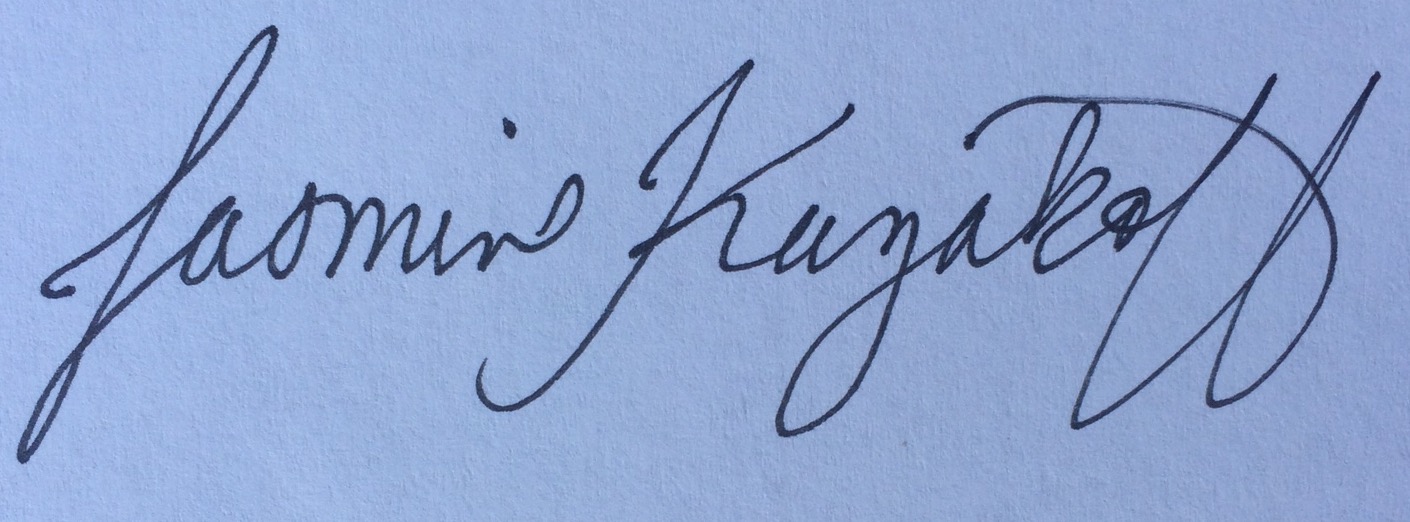 Jasmin Kazakoff